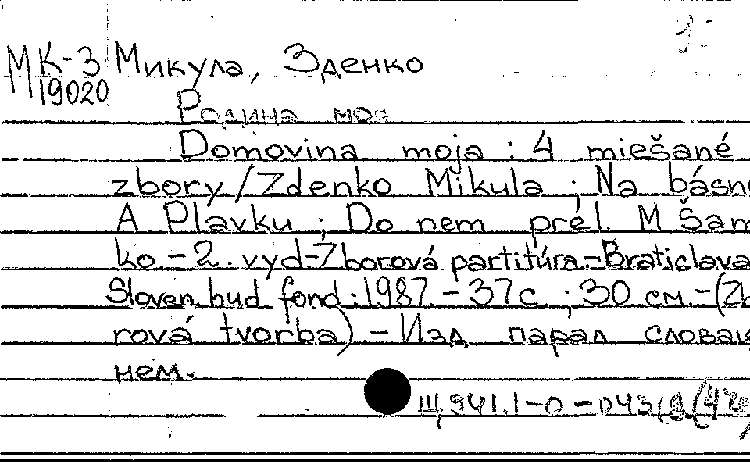 МК-3 Микула, Зденко
19020
Родина моя
Domovina moja : 4 miešané
zbory / Zdenko Mikula ; Na básn
A Plavku ; Do nem prel. M Šam
ko - 2. vyd - Zborová partitúra. - Bratislava
Sloven. hud fond : 1987 - 37 с ; 30 см - (Zb
rová tvorba) - Изд парал словац
нем.
Щ 941.1-0